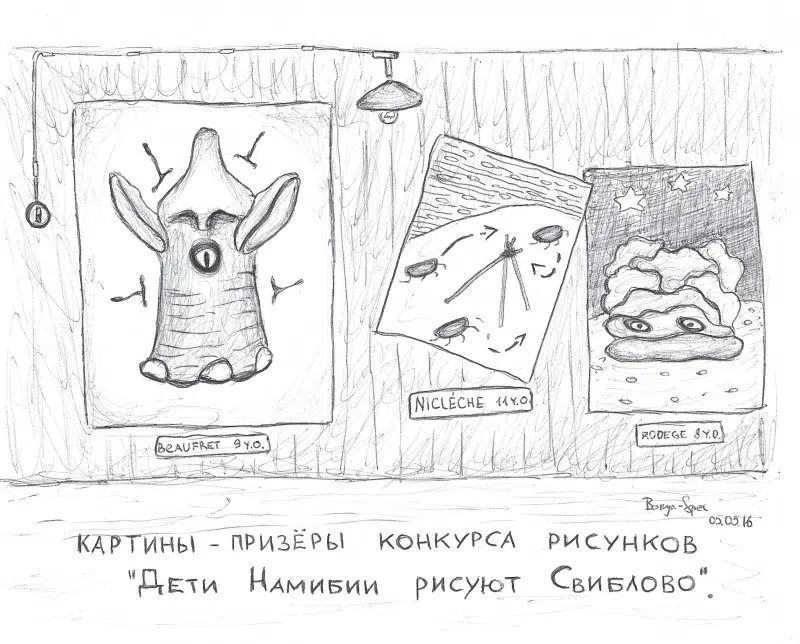 BEAUFRET 9 Y.O.
NICLÉCHE 11 Y.O.
RODEGE 8 Y.O.
05.05.16
КАРТИНЫ - ПРИЗЁРЫ КОНКУРСА РИСУНКОВ
"ДЕТИ НАМИБИИ РИСУЮТ СВИБЛОВО".